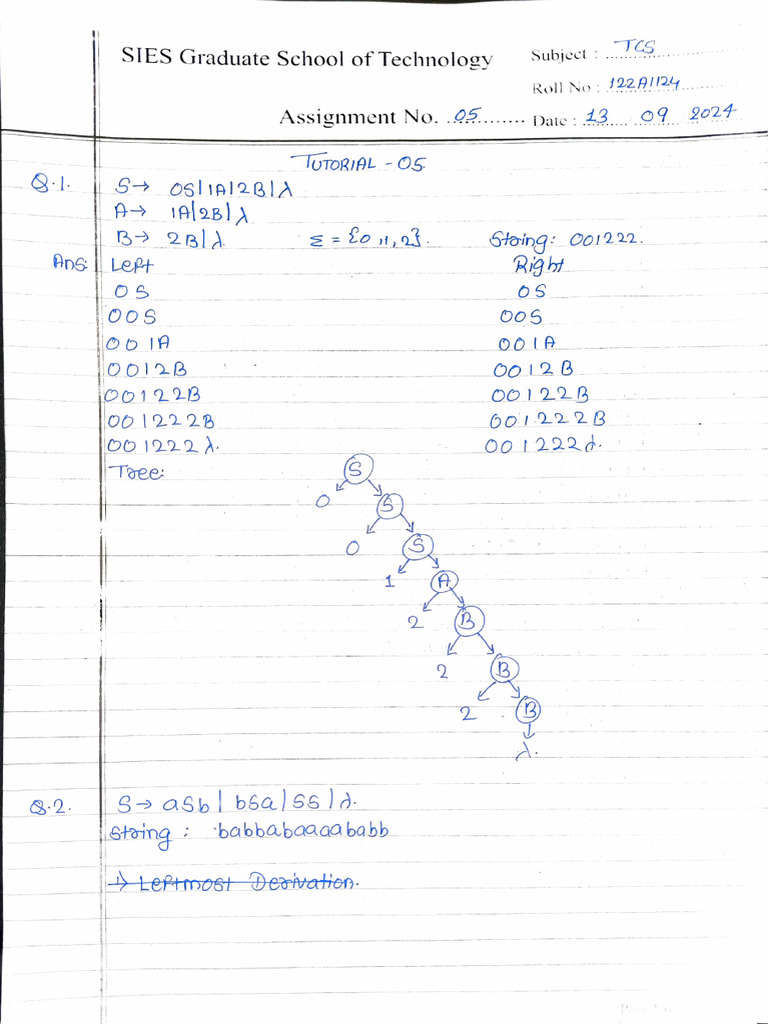 SIES Graduate School of Technology
Subject : TCS
Roll No : 122A1124
Assignment No. 05
Date : 13 09 2024
TUTORIAL - 05
Q.1. S→ 0S|1A|2B|λ
A→ 1A|2B|λ
B→ 2B|λ Σ = {0,1,2}. String: 001222.
Ans: Left Right
0S 0S
00S 00S
001A 001A
0012B 0012B
00122B 00122B
001222B 001222B
001222λ. 001222λ.
Tree:
S
0 S
0 S
1 A
2 B
2 B
2 B
λ.
Q.2. S→ aSb|bSa|SS|λ.
String : babbabaaaababb
→ Leftmost Derivation.